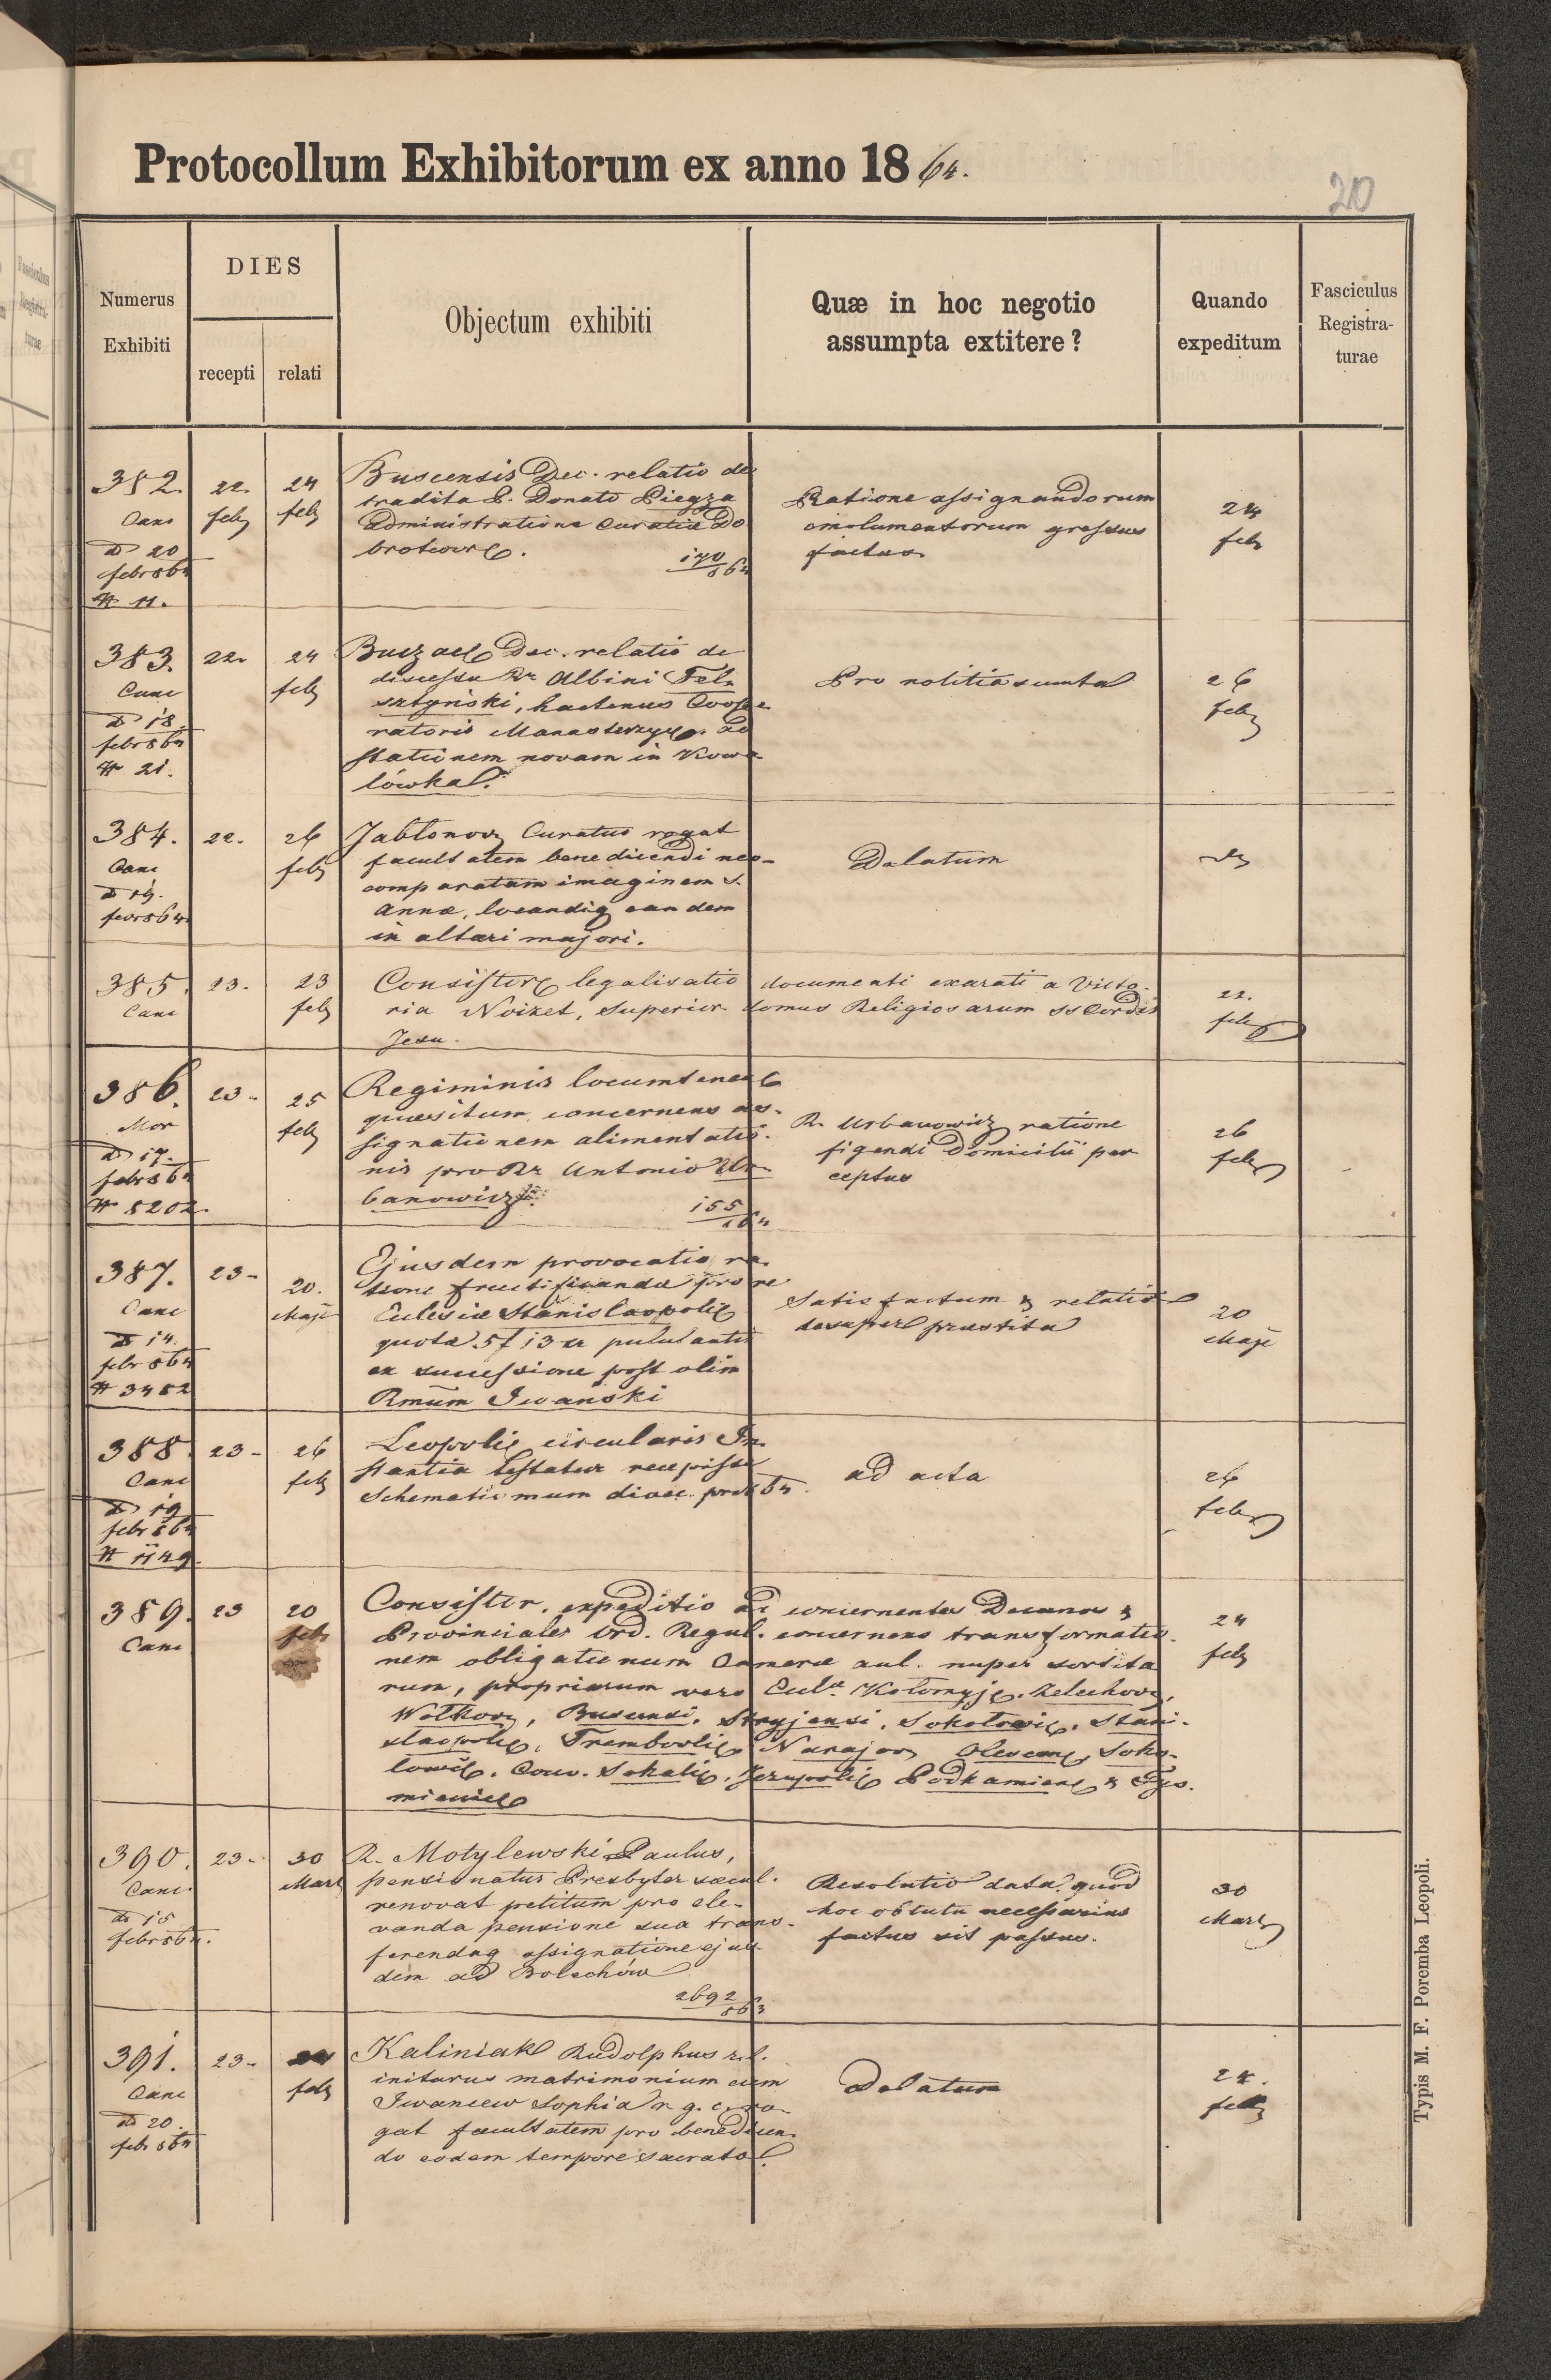 Protocollum Exhibitorum ex anno 1864.
20
Numerus Exhibiti
DIES
recepti
relati
Objectum exhibiti
Quæ in hoc negotio
assumpta extitere?
Quando
expeditum
Fasciculus
Registra-
turae
382.
Canc
d 20
febr 864
# 11.
22.
feb
24
feb
Buscensis Dec. relatio de
tradita P. Donato Piegza
Administratione Curatiæ Do
brotwor
170/864
Ratione assignandorum
emolumentorum gressus
factus
24
feb
383.
Canc
d 18.
febr 864
# 21.
22.
24
feb
Buczac Dec. relatio de
discessu Rr Albini Fel-
sztyński, hactenus Coope
ratoris Manasterzyc ad
stationem novam in Kowa
lówka.
Pro notitia sumta
26
feb
384.
Canc
d 19.
febr 864
22.
26
feb
Jabłonov Curatus rogat
facultatem benedicendi neo-
comparatam imaginem S.
Annæ, locandiq eandem
in altari majori.
Delatum
385.
Canc
23.
23
feb
Consistor legalisatio documenti exarati a Victo-
ria Noizet, Superior domus Religiosarum SS Cordis
Jesu.
22.
feb
386.
Mor
d 17.
febr 864
# 8202.
23-
25
feb
Regiminis locumtenent
quæsitum concernens as-
signationem alimentatio-
nis pro Rr Antonio Ur-
banowicz.
155/864
R. Urbanowicz ratione
figendi Domicilii per
ceptus
26
feb
387.
Canc
d 14.
febr 864
# 3482
23-
20.
Maji
Ejusdem provocatio ra-
tione fructificandæ pro re
Eclesiæ Stanislaopoli
quota 5 f 13 xr pululantis
ex successione post olim
Rmum Iwański
Satisfactum & relatio
desuper præstita
20
Maji
388.
Canc
d 19
febr 864
# 1149.
23-
26
feb
Leopoli circularis In-
stantia testatur recepisse
Schematismum dioec. pro 864.
ad acta
26
feb
389.
Canc
23
20
feb
Consistor. expeditio ad concernentes Decanos &
Provinciales Ord. Regul. concernens transformatio-
nem obligationum Cameræ aul. nuper sortita
rum, propriarum vero Ecclæ Kołomyj. Zelechov,
Wołkov, Buscensi, Stryjensi, Sokołowi, Stani-
slaopoli, Trembowli Narajov Olescen, Soko-
lowi. Conv. Sokali, Jezupoli Podkamien & Tys-
mienic
24
feb
390.
Canc.
d 15
febr 864.
23-
30
Mart
R. Motylewski Paulus,
pensionatus Presbyter sæcul.
renovat petitum pro ele-
vanda pensione sua trans-
ferendaq assignatione ejus-
dem ad Bolechów
2692/863
Resolutio data quod
hoc obtutu necessarius
factus sit passus.
30
Mart
391.
Canc
d 20.
febr 864
23-
24
feb
Kaliniak Rudolphus r. l.
initurus matrimonium cum
Iwancew Sophia r. g. c. ro-
gat facultatem pro benedicen-
do eodem tempore sacrato.
Delatum
24.
feb
Typis M. F. Poremba Leopoli.